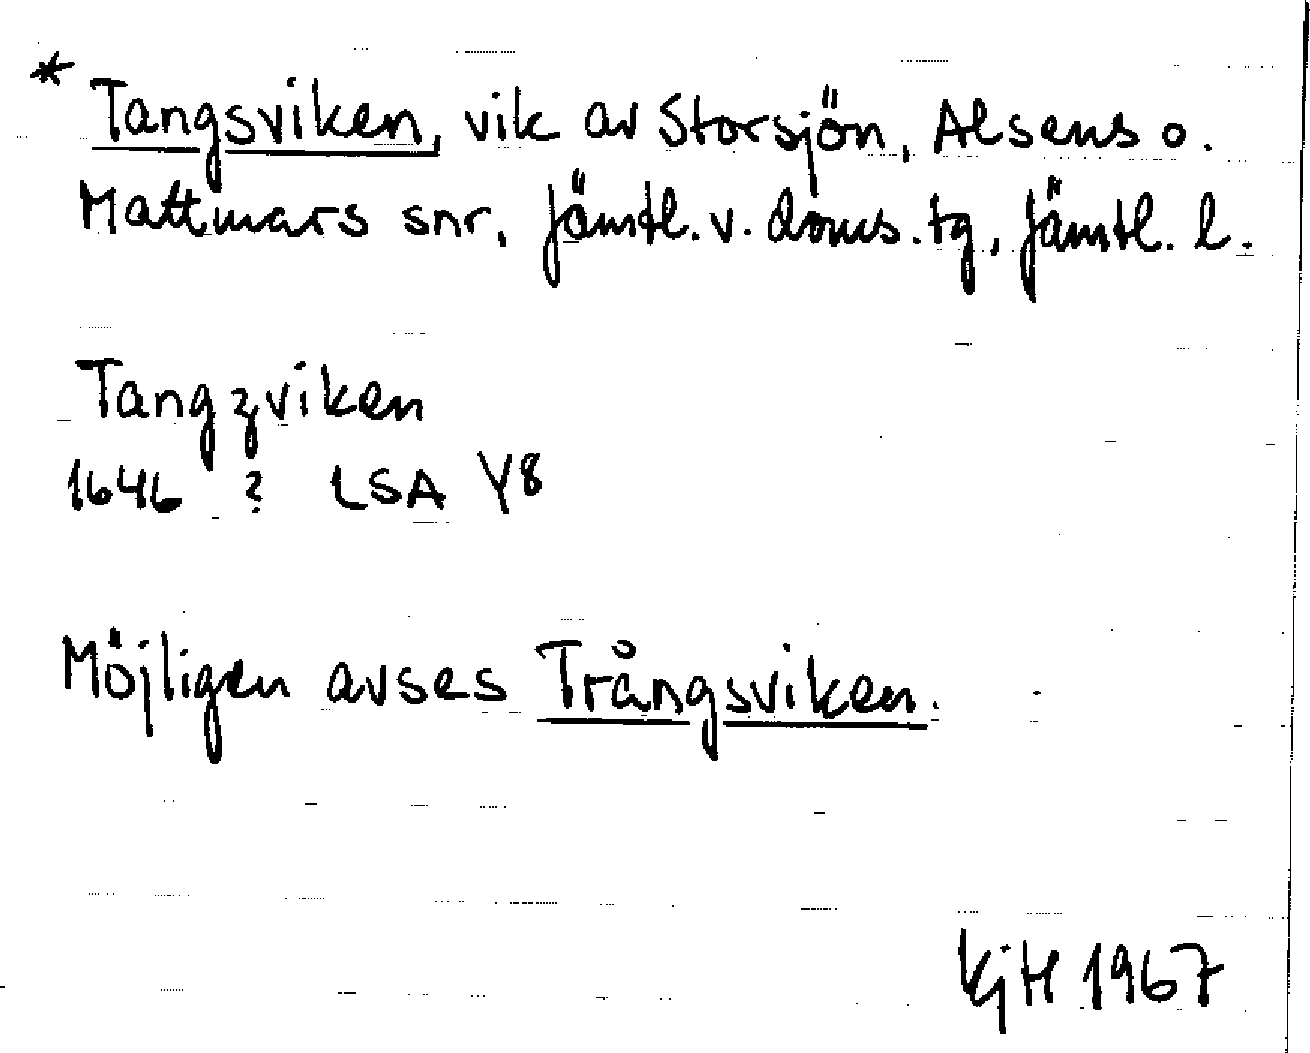 * Tangsviken, vik av Storsjön, Alsens o.
Mattmars snr, Jämtl. v. doms. tg, Jämtl. l.
Tangzviken
1646 ? LSA Y8
Möjligen avses Trångsviken.
KjH 1967